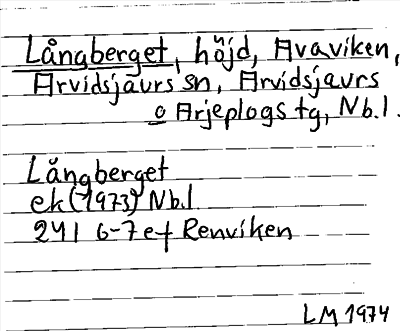 Långberget, höjd, Avaviken,
Arvidsjaurs sn, Arvidsjaurs
o Arjeplogs tg, Nb.l.
Långberget
ek (1973) Nb.l
24I 6-7 e-f Renviken
LM 1974